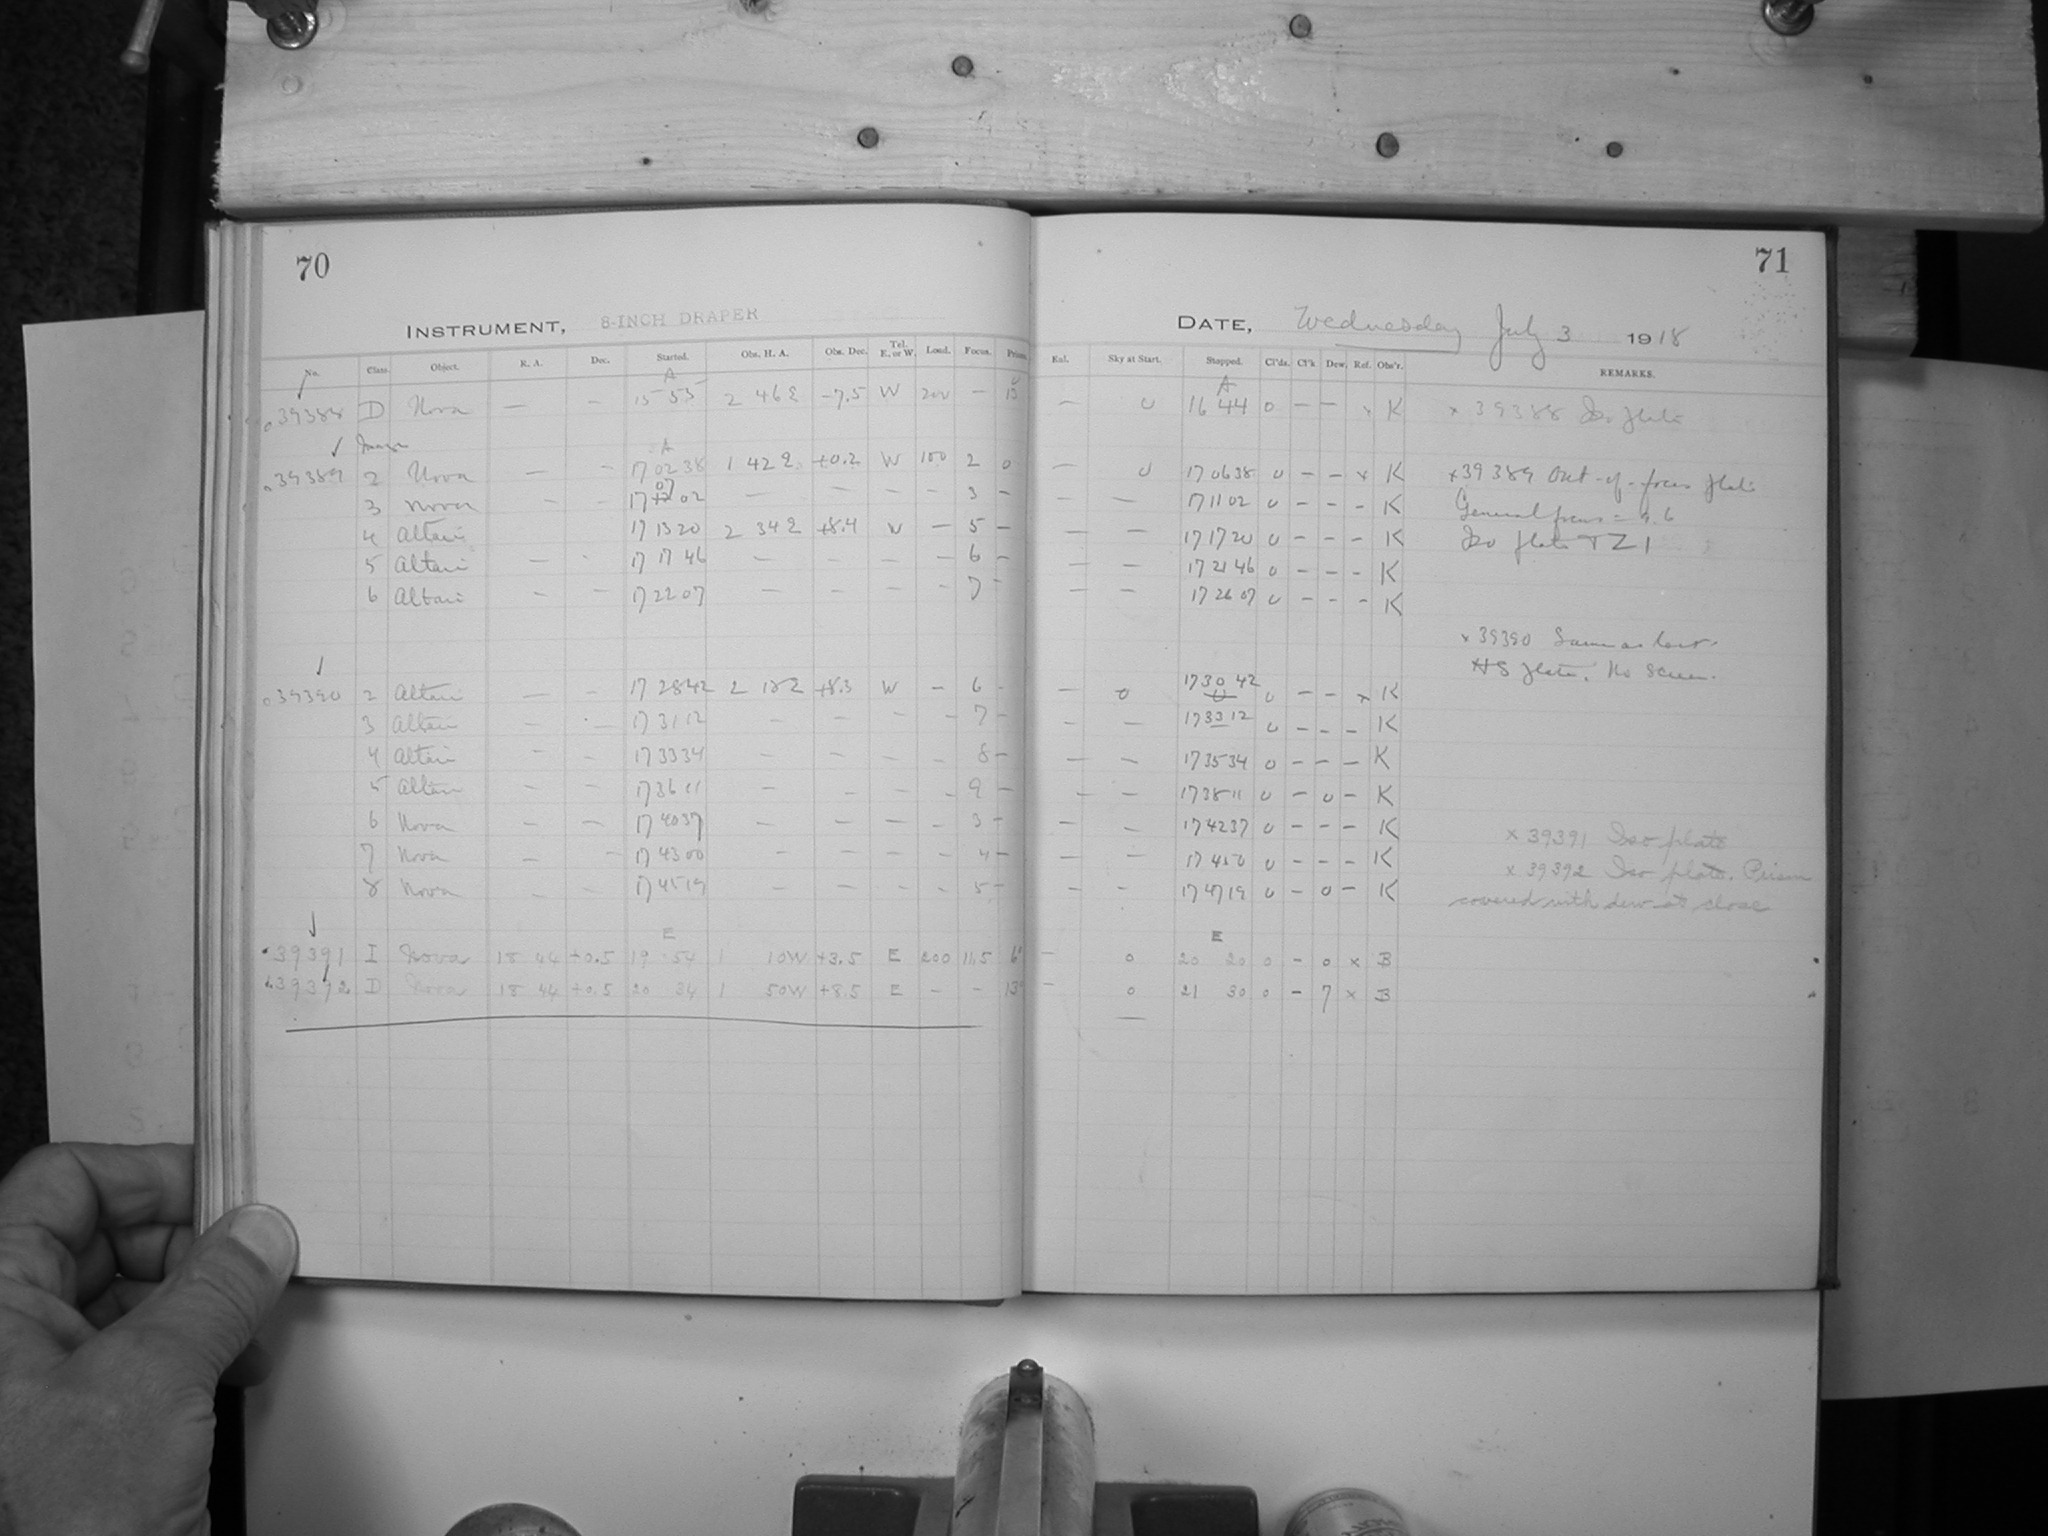 70
INSTRUMENT, 8-INCH DRAPER
No. Class. Object. R. A. Dec. Started. Obs. H. A. Obs. Dec. Tel. E. or W. Load. Focus. Prism
A
39388 D Nova — — 15 53 2 46 E -7.5 W 200 —
39389 2 Nova — — 17 02 38 1 42 E +0.2 W 100 2 0
3 Nova — — 17 07 02 — — — — 3 —
4 Altair 17 13 20 2 34 E +8.4 W — 5 —
5 Altair — 17 17 46 — — — 6 —
6 Altair — — 17 22 07 — — — — 7 -
39390 2 Altair — — 17 28 42 2 18 E +8.3 W — 6 -
3 Altair — 17 31 12 — — — — 7 —
4 Altair — — 17 33 34 — — — — 8 —
5 Altair — — 17 36 11 — — — — 9 —
6 Nova — — 17 40 37 — — — — 3 —
7 Nova — — 17 43 00 — — — — 4 —
8 Nova — — 17 45 19 — — — — 5 —
E
39391 I Nova 18 44 +0.5 19 54 1 10W +3.5 E 200 11.5 6°
39392 D Nova 18 44 +0.5 20 34 1 50W +8.5 E — — 13
71
DATE, Wednesday July 3 1918
Exl. Sky at Start. Stopped. Cl'ds. Cl'k Dew. Ref. Obs'r. REMARKS.
A
— 0 16 44 0 — — x K x 39388 Iso plate
— 0 17 06 38 0 — — x K x 39389 Out-of-focus plate
— — 17 11 02 0 — — - K General focus =
— — 17 17 20 0 — — - K Iso plate + Z 1
— — 17 21 46 0 — — - K
— — 17 26 07 0 — — - K
x 39390 Same as last.
plate. No Screen.
— 0 17 30 42 0 — — x K
— — 17 33 12 0 — — — K
— — 17 35 34 0 — — — K
— — 17 38 11 0 — 0 — K
— — 17 42 37 0 — — — K x 39391 Iso plate
— — 17 45 0 0 — — — K x 39392 Iso plate. Prism
— — 17 47 19 0 — 0 — K covered with dew at close
E
— 0 20 20 0 — 0 x B
— 0 21 30 0 — 7 x B